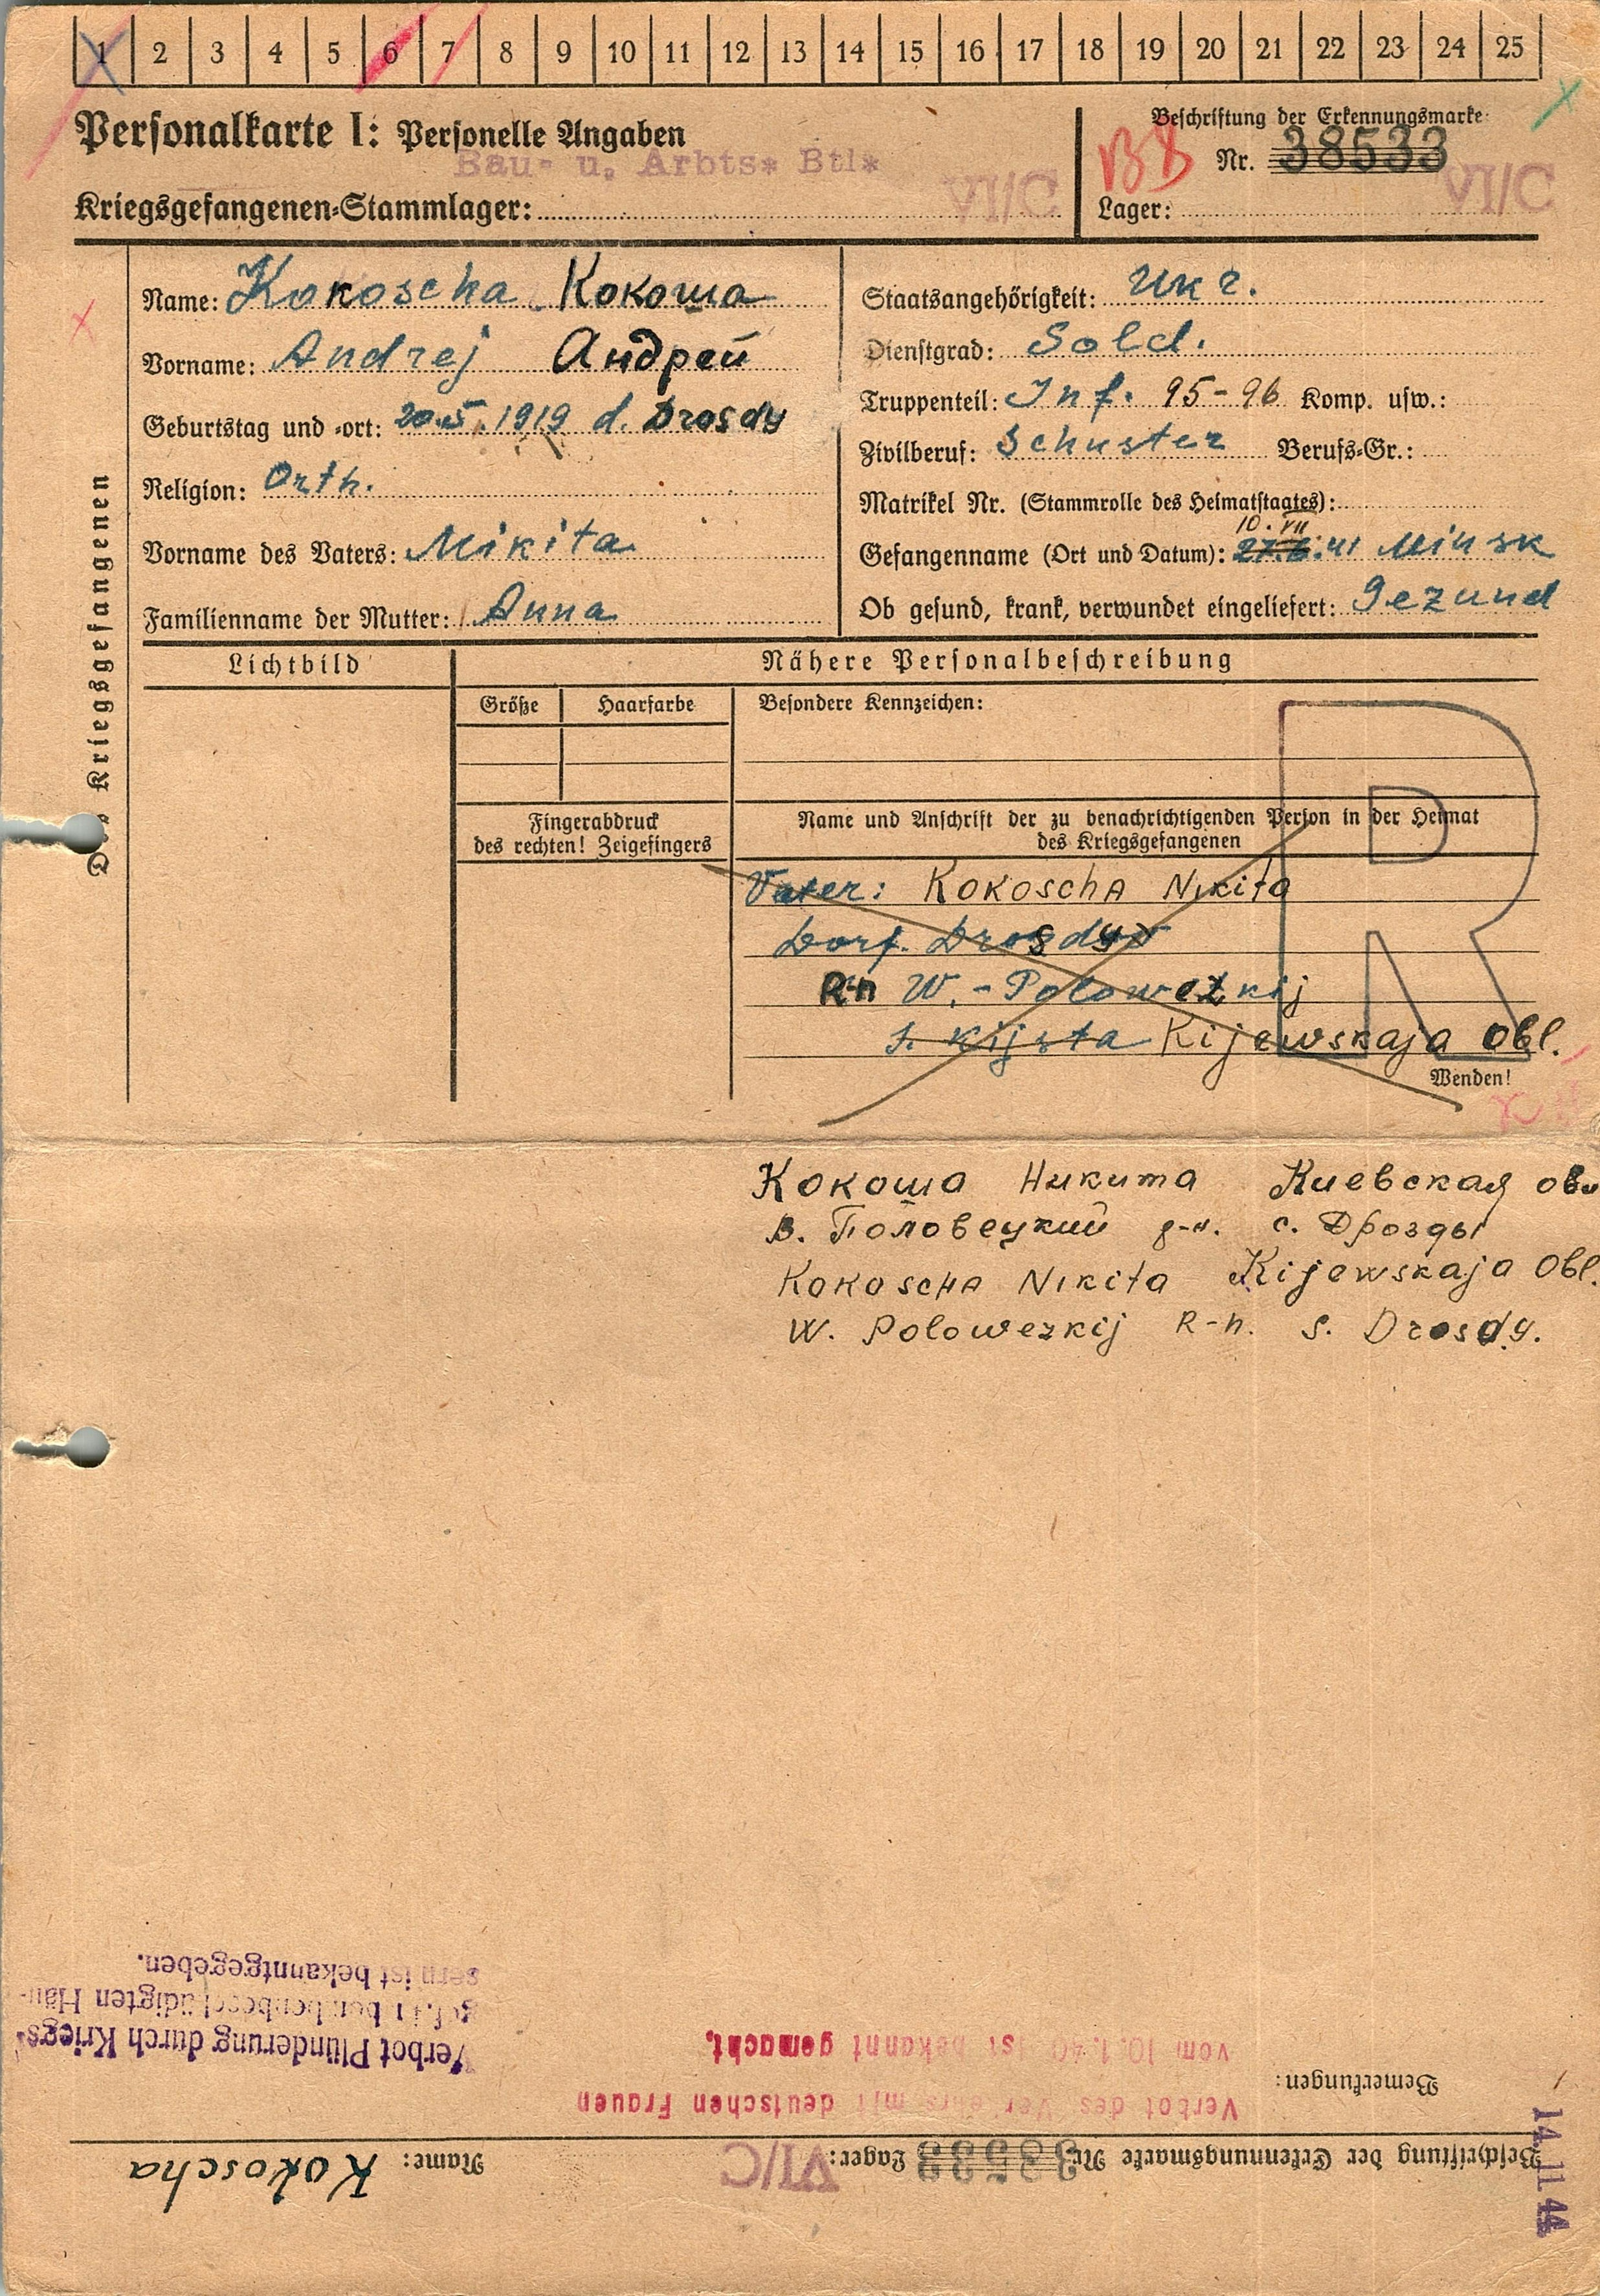 1 2 3 4 5 6 7 8 9 10 11 12 13 14 15 16 17 18 19 20 21 22 23 24 25
Personalkarte I: Personelle Angaben
Bau- u. Arbts* Btl*
Kriegsgefangenen-Stammlager: VI/C
Beschriftung der Erkennungsmarke
Nr. 38533
Lager: VI/C
Des Kriegsgefangenen
Name: Kokoscha Кокоша
Vorname: Andrej Андрей
Geburtstag und -ort: 20.5.1919 d. Drosdy
Religion: Orth.
Vorname des Vaters: Mikita
Familienname der Mutter: Anna
Staatsangehörigkeit: Ukr.
Dienstgrad: Sold.
Truppenteil: Inf. 95-96 Komp. usw.:
Zivilberuf: Schuster Berufs-Gr.:
Matrikel Nr. (Stammrolle des Heimatstaates):
10. VII
Gefangenname (Ort und Datum): 27.6.41 Minsk
Ob gesund, krank, verwundet eingeliefert: Gezund
Lichtbild
Nähere Personalbeschreibung
Größe Haarfarbe
Besondere Kennzeichen:
Fingerabdruck
des rechten! Zeigefingers
Name und Anschrift der zu benachrichtigenden Person in der Heimat
des Kriegsgefangenen
R
Vater: Kokoscha Nikita
Dorf. Drosdy
R-n W.-Polowezkij
s. Kijsta Kijewskaja Obl.
Wenden!
Кокоша Никита Киевская обл
В. Половецкий р-н. с. Дрозды
Kokoscha Nikita Kijewskaja Obl.
W. Polowezkij R-n. s. Drosdy.
14.11.44
Beschriftung der Erkennungsmarke Nr. 38533 Lager: VI/C
Name: Kokoscha
Bemerkungen:
Verbot des Verkehrs mit deutschen Frauen
vom 10.1.40 ist bekannt gemacht.
Verbot Plünderung durch Kriegs-
gef. in bombenbeschädigten Häu-
sern ist bekanntgegeben.